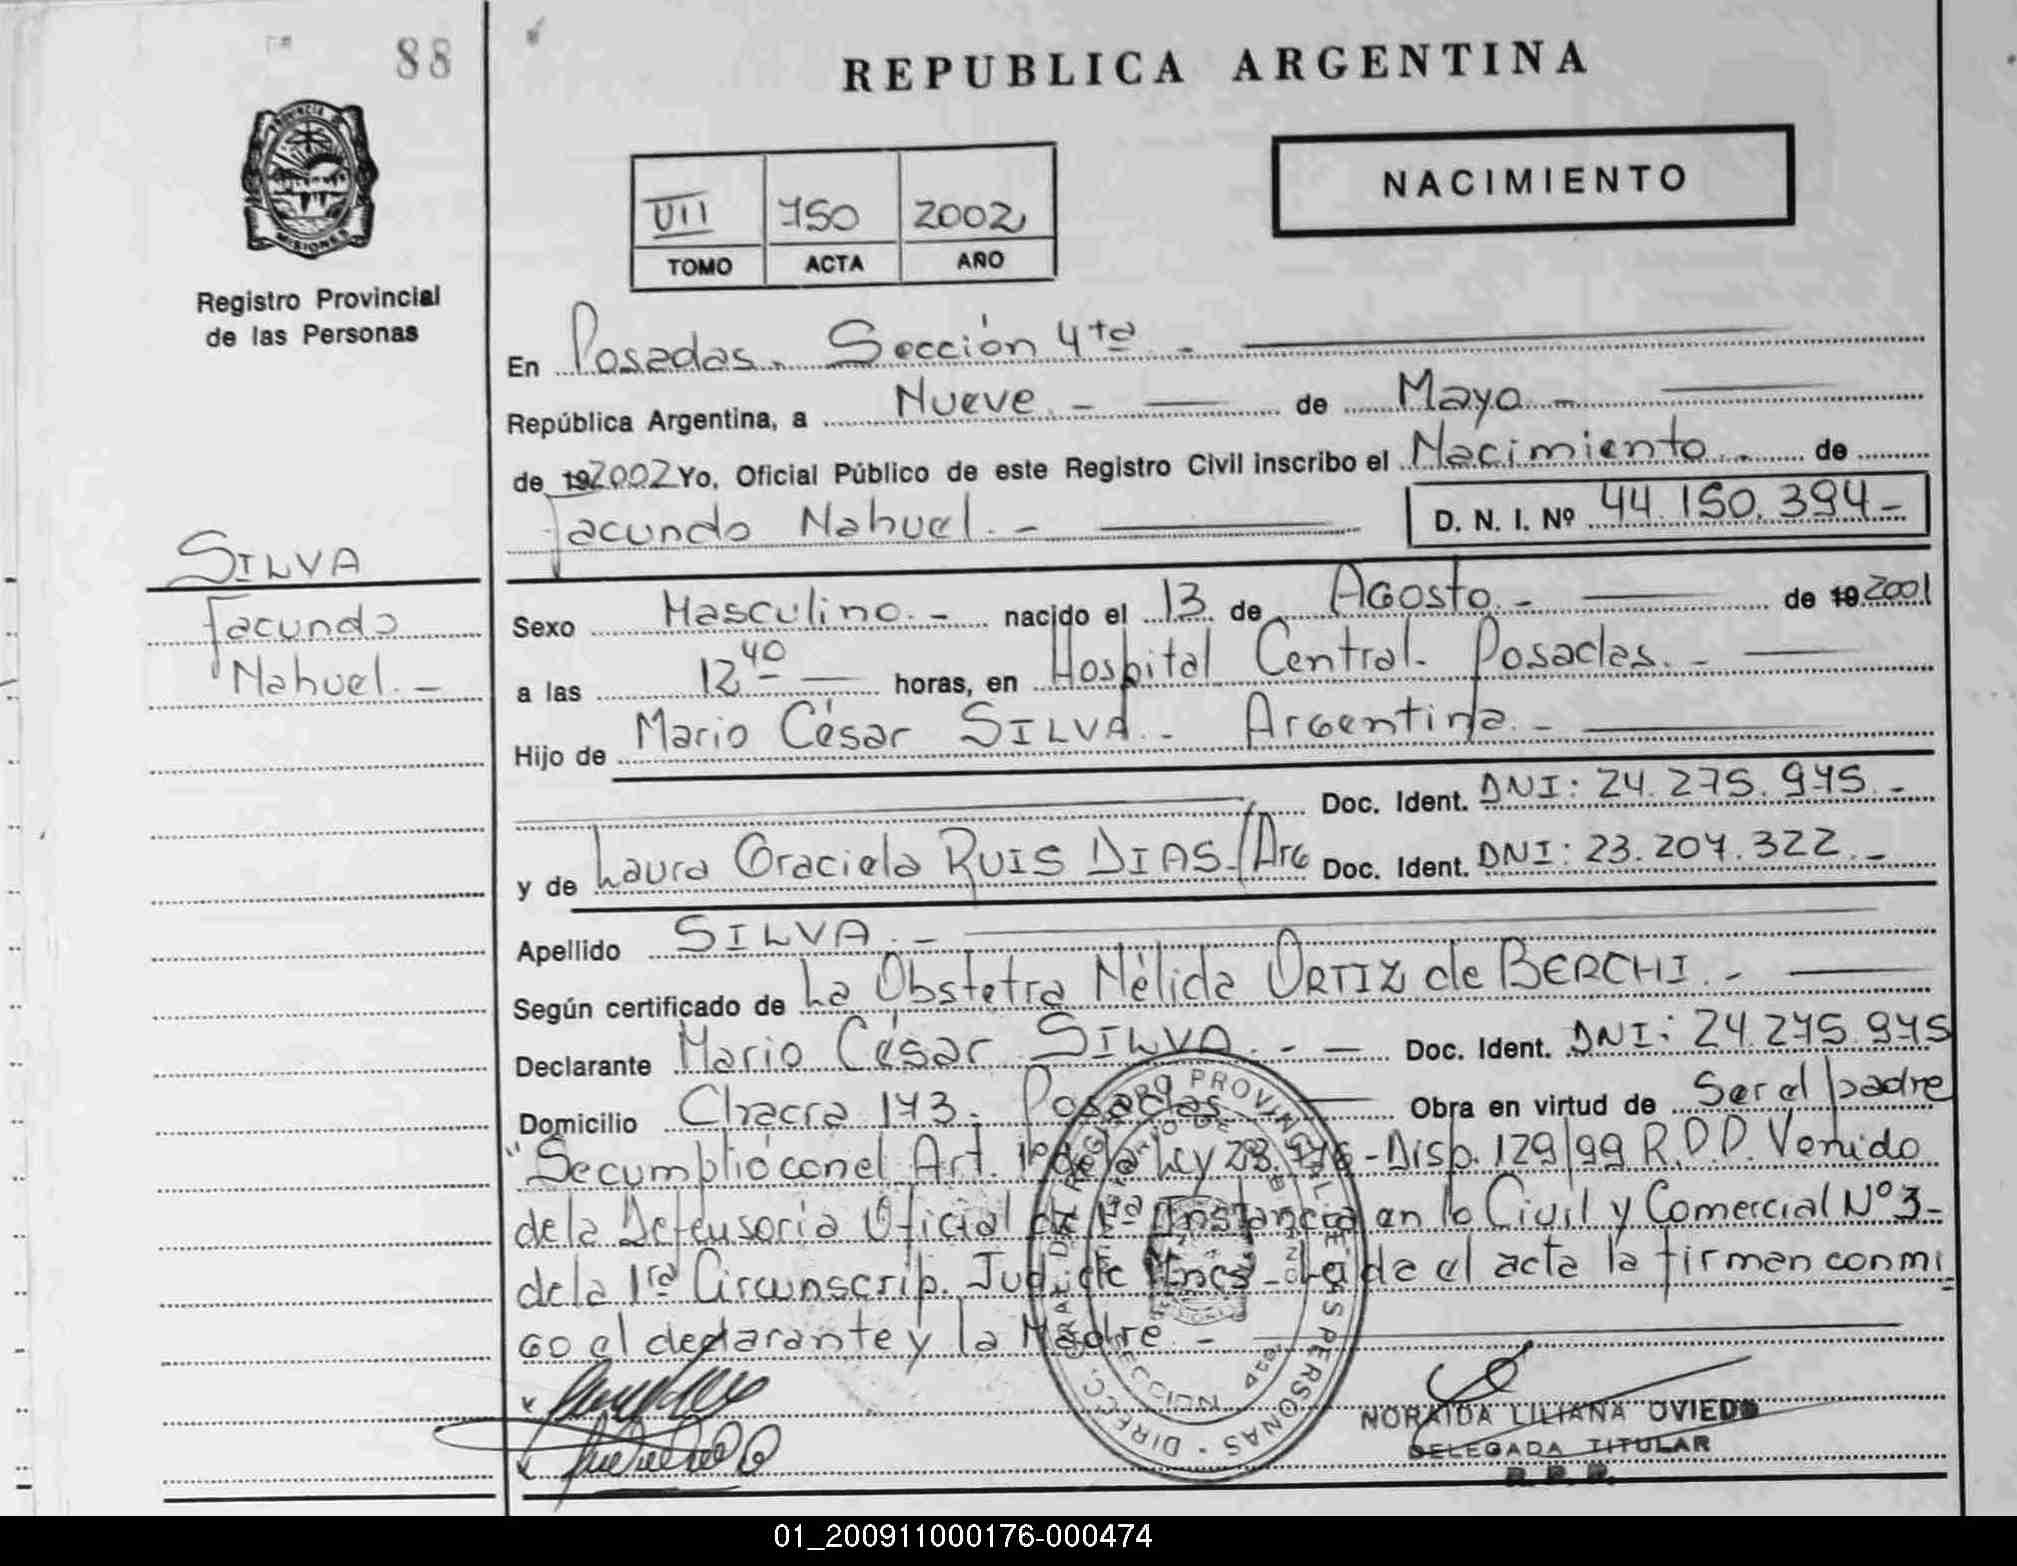 88
REPUBLICA ARGENTINA
PROVINCIA DE
MISIONES
Registro Provincial
de las Personas
VII 750 2002
TOMO ACTA AÑO
NACIMIENTO
En Posadas. Sección 4ta -
República Argentina, a Nueve. - de Mayo -
de 192002 Yo, Oficial Público de este Registro Civil inscribo el Nacimiento. - de
Facundo Nahuel. - D. N. I. Nº 44.150.394-
SILVA
Facundo
Nahuel. -
Sexo Masculino. - nacido el 13 de Agosto - de 19 2001
a las 12 40 horas, en Hospital Central. Posadas. -
Hijo de Mario César SILVA. - Argentina. -
Doc. Ident. DNI: 24.275.975. -
y de Laura Graciela RUIS DIAS-/Arg Doc. Ident. DNI: 23.207.322. -
Apellido SILVA. -
Según certificado de La Obstetra Nélida ORTIZ de BERCHI. -
Declarante Mario César SILVA. - - Doc. Ident. DNI: 24.275.975
Domicilio Chacra 173. Posadas Obra en virtud de Ser el padre
"Se cumplió con el Art. 1º de la ley 23. - Disp. 129/99 R.P.P. Venido
de la Defensoria Oficial de 1ra Instancia en lo Civil y Comercial Nº 3-
de la 1ra Circunscrip. Jud. de Mnes - Leida el acta la firman conmi
go el declarante y la Madre. -
DIRECC. GRAL. DEL REGISTRO PROVINCIAL DE LAS PERSONAS
NORAIDA LILIANA OVIEDO
DELEGADA TITULAR
R. P. P.
01_200911000176-000474